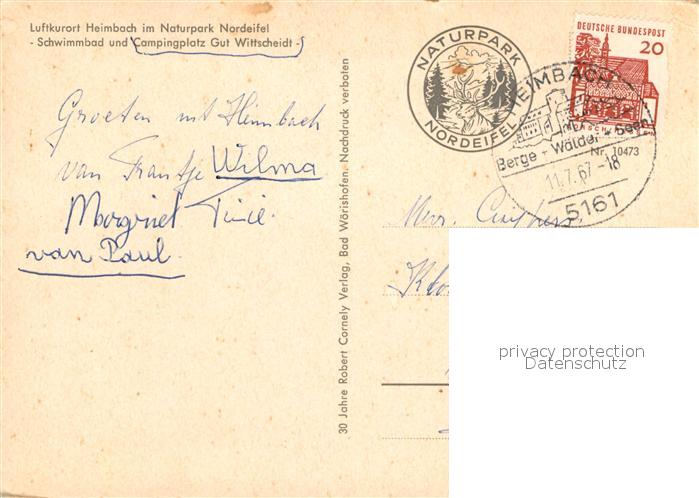 Luftkurort Heimbach im Naturpark Nordeifel
- Schwimmbad und Campingplatz Gut Wittscheidt -
Groeten uit Heimbach
van Frantje Wilma
Margriet Tinie.
van Paul.
30 Jahre Robert Cornely Verlag, Bad Wörishofen. Nachdruck verboten
NATURPARK
NORDEIFEL
DEUTSCHE BUNDESPOST
20
HEIMBACH
Berge - Wälder - Seen
Nr. 10473
11.7.67-18
5161
privacy protection
Datenschutz